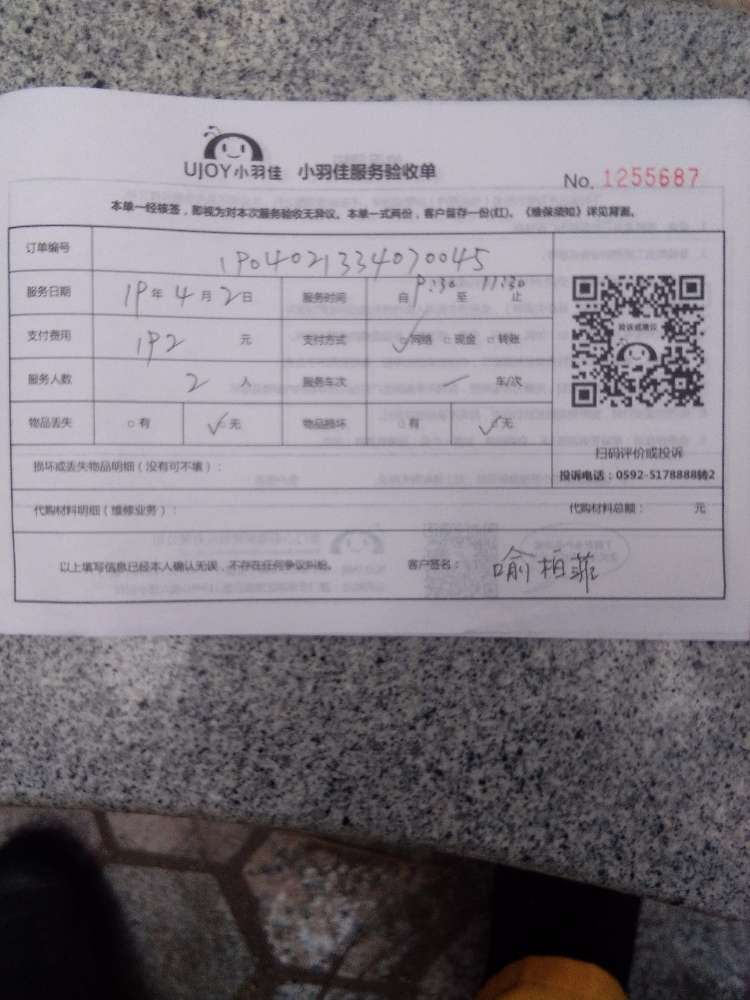 UJOY小羽佳 小羽佳服务验收单
No. 1255687
本单一经核签，即视为对本次服务验收无异议。本单一式两份，客户留存一份(红)。《维保须知》详见背面。
订单编号 1904021334070045
服务日期 19年4月2日 服务时间 自9:30至11:30止
支付费用 192元 支付方式 ☑网络 □现金 □转账
投诉或建议
服务人数 2人 服务车次 一 车/次
物品丢失 □有 ☑无 物品损坏 □有 ☑无
扫码评价或投诉
损坏或丢失物品明细（没有可不填）：
投诉电话：0592-5178888转2
代购材料明细（维修业务）： 代购材料总额： 元
以上填写信息已经本人确认无误，不存在任何争议纠纷。 客户签名： 喻柏菲